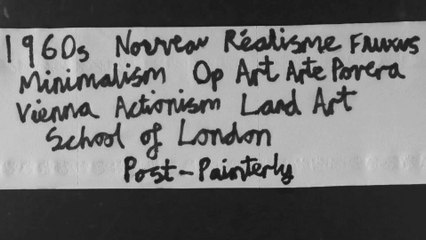 1960s Nouveau Réalisme Fluxus
Minimalism Op Art Arte Povera
Vienna Actionism Land Art
School of London
Post-Painterly